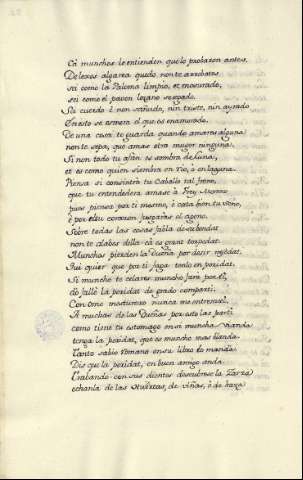 Cá munchos le entienden que lo probaron antes.
De lexos algarea quedo, non te arrebates
Sei como la Paloma limpio, et mesurado,
sei como el paven lozano sosegado.
Sei cuerdo é non sañudo, nin triste, nin ayrado
En esto se esmera el que es enamorado.
De una cosa te guarda quando amares alguna
non te sepa, que amas otra muger ninguna.
Si non todo tu afan es sombra de Luna,
et es como quien siembra en rio, ó en laguna.
Piensa si consintrá tu Caballo tal freno,
que tu entendedera amase á Frey Moreno
pues piensa por ti mesmo, é cata bien tu seno,
é por el tu corazon juzgarás el ageno.
Sobre todas las cosas fabla de su bondat
non te alabes della cá es grant torpedat.
Munchos pierden la Dueña por decir neçedat,
Qui quier que por ti faga tenlo en poridat.
Si muncho le celares muncho fará por ti,
do fallé la poridat de grado comparti.
Con ome mesturero nunca me entremeti,
A muchas de las Dueñas por esto las parti
como tiene tu estomago en si muncha vianda
tenga la poridat, que es muncho mas blanda.
Caton sabio Romano en su libro lo manda
Dis que la poridat, en buen amigo anda
Trabando con sus dientes descubrese la Zarza
echanla de las Huertas, de viñas, é de haza